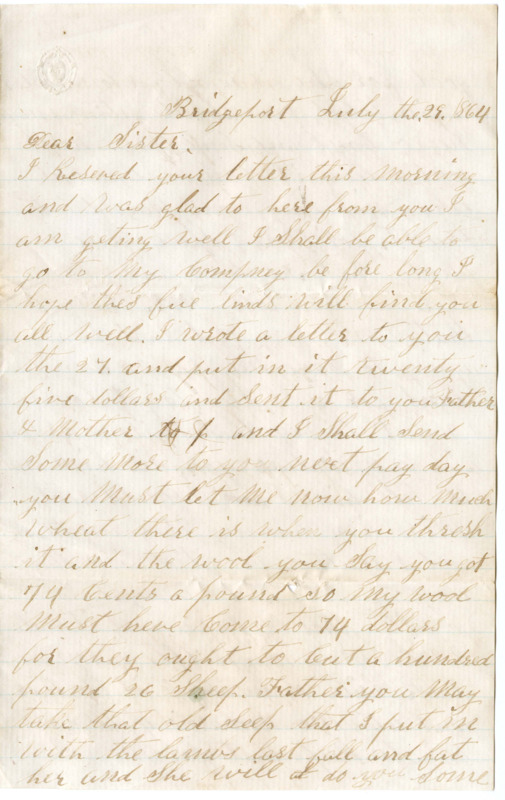 Bridgeport July the. 29. 1864
Dear Sister.
I Reseved your letter this morning
and was glad to here from you I
am geting well I Shall be able to
go to my Compney be fore long I
hope thes fue linds will find you
all well. I wrote a letter to you
the 27. and put in it twenty
five dollars and Sent it to you Father
& Mother and I Shall Send
Some More to you next pay day
you Must let Me now how Much
wheat there is when you thresh
it and the wool you Say you got
74 Cents a pound so my wool
Must heve Come to 74 dollars
for they ought to Cut a hundred
pound 26 Sheep. Father you May
take that old Seep that I put in
with the lambs last fall and fat
her and She will do you Some